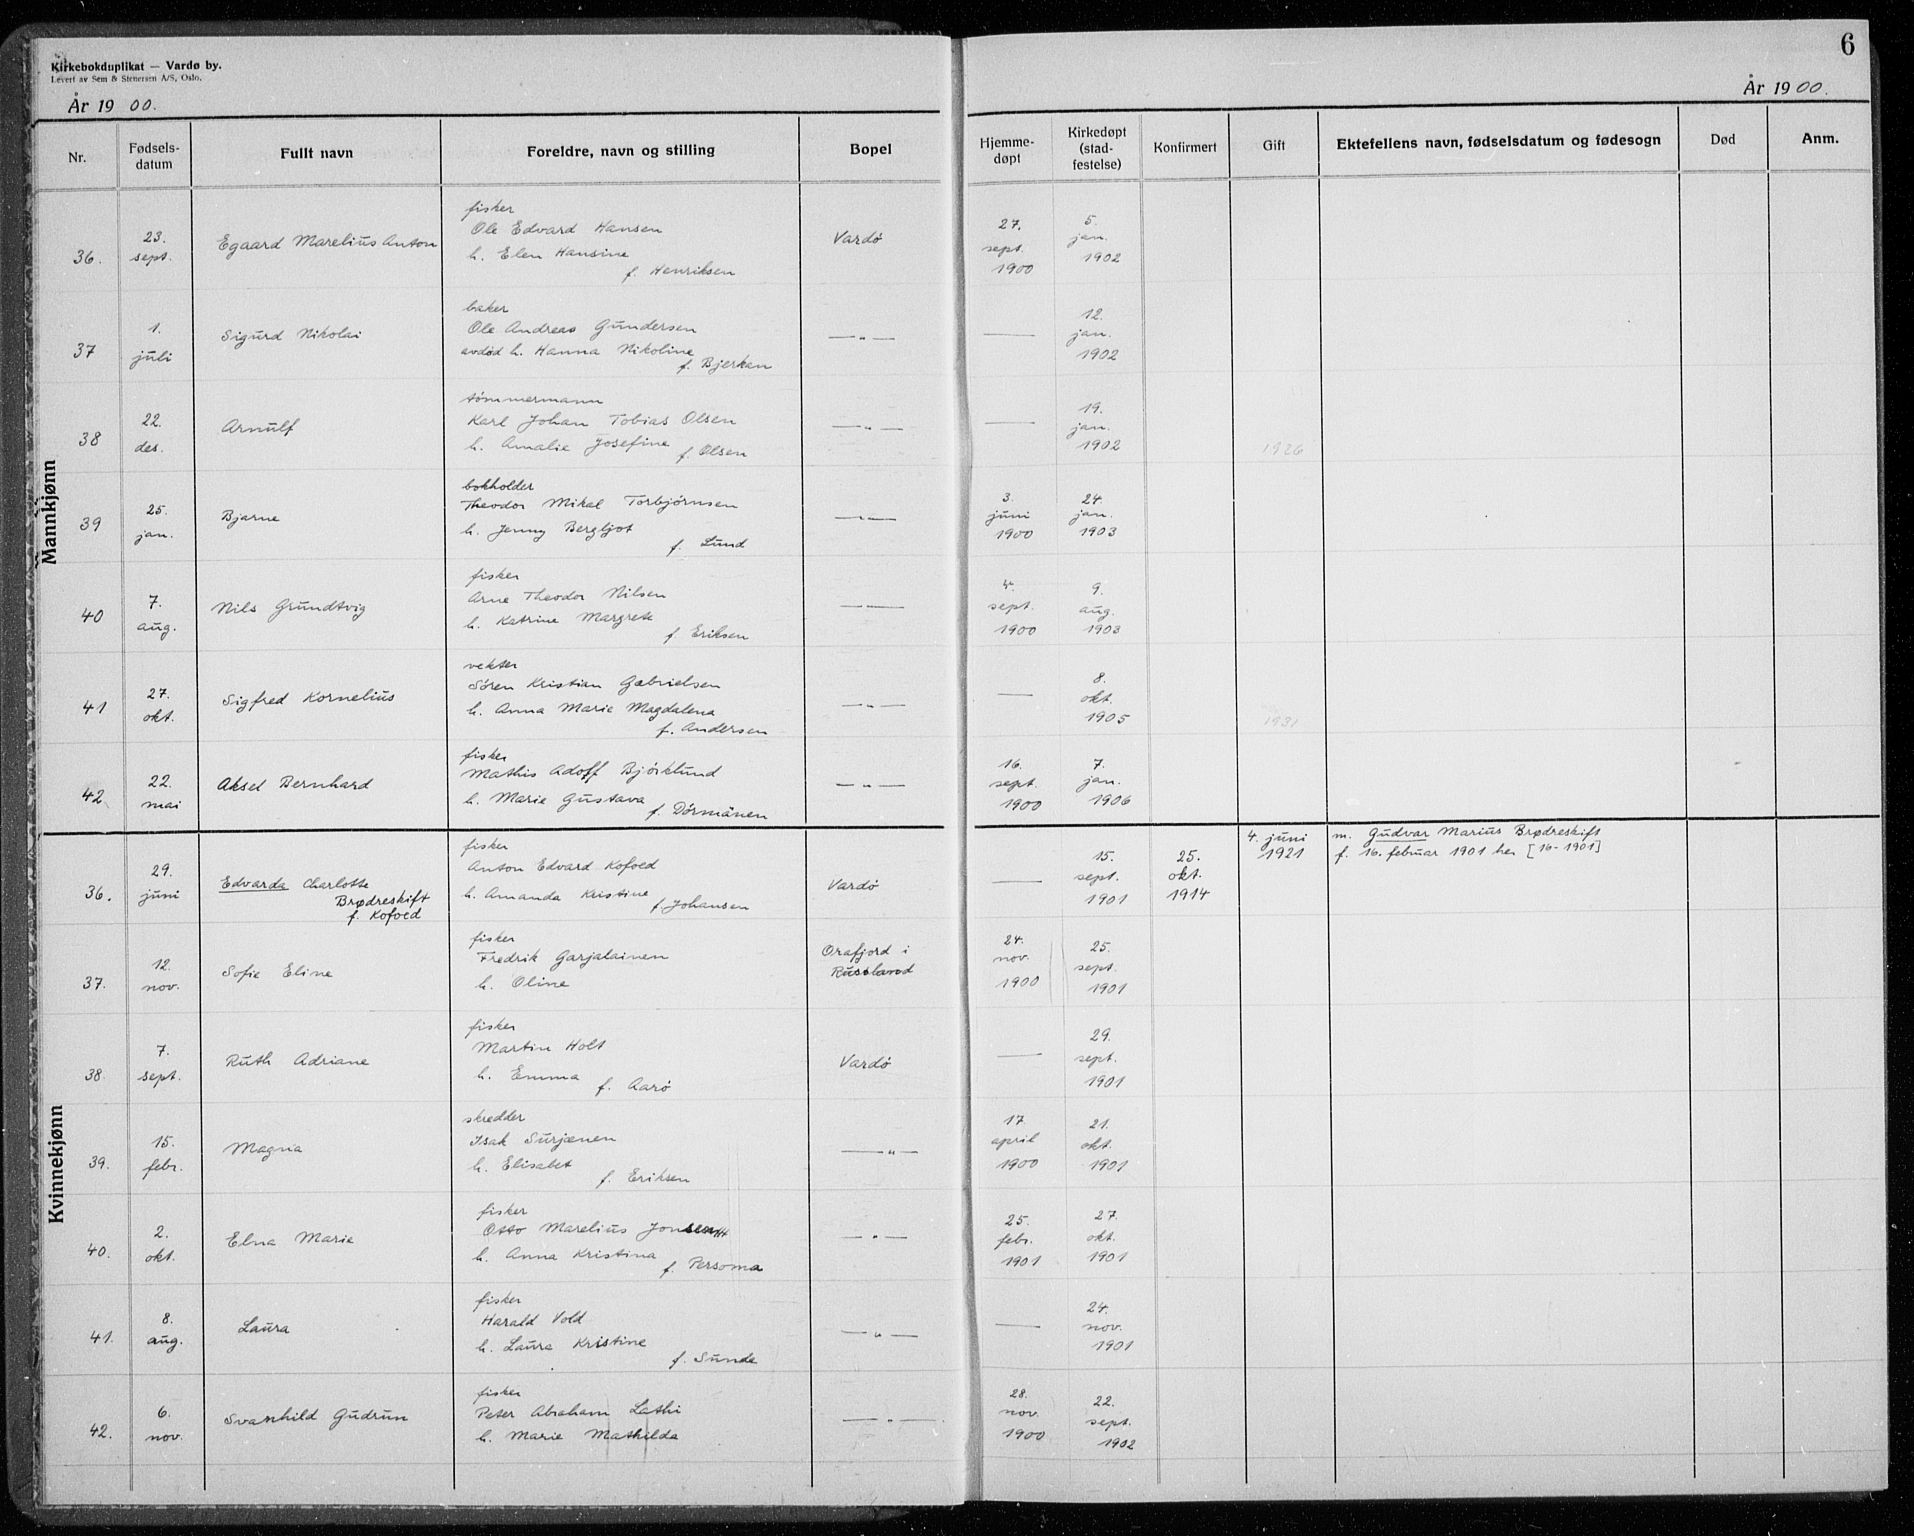 Kirkebokduplikat — Vardø by.
Levert av Sem & Stenersen A/S, Oslo.
År 1900.
6
År 1900.
Nr.
Fødsels-
datum
Fullt navn
Foreldre, navn og stilling
Bopel
Hjemme-
døpt
Kirkedøpt
(stad-
festelse)
Konfirmert
Gift
Ektefellens navn, fødselsdatum og fødesogn
Død
Anm.
Mannkjønn
36.
23.
sept.
Egaard Marelius Anton
fisker
Ole Edvard Hansen
h. Elen Hansine
f. Henriksen
Vardø
27.
sept.
1900
5.
jan.
1902
37
1.
juli
Sigurd Nikolai
baker
Ole Andreas Gundersen
avdød h. Hanna Nikoline
f. Bjerkan
— „ —
—
12.
jan.
1902
38
22.
des.
Arnulf
tømmermann
Karl Johan Tobias Olsen
h. Amalie Josefine
f. Olsen
— „ —
—
19.
jan.
1902
1926
39
25.
jan.
Bjarne
bokholder
Theodor Mikal Torbjørnsen
h. Jenny Bergljot
f. Lund
— „ —
3.
juni
1900
24.
jan.
1903
40
7.
aug.
Nils Grundtvig
fisker
Arne Theodor Nilsen
h. Katrine Margrete
f. Eriksen
— „ —
4.
sept.
1900
9.
aug.
1903
41
27.
okt.
Sigfred Kornelius
vekter
Søren Kristian Gabrielsen
h. Anna Marie Magdalena
f. Andersen
— „ —
—
8.
okt.
1905
1931
42
22.
mai
Aksel Bernhard
fisker
Mathis Adoff Bjørklund
h. Marie Gustava
f. Dørmänen
— „ —
16.
sept.
1900
7.
jan.
1906
Kvinnekjønn
36.
29.
juni
Edvarda Charlotte
Brødreskift
f. Kofoed
fisker
Anton Edvard Kofoed
h. Amanda Kristine
f. Johansen
Vardø
—
15.
sept.
1901
25.
okt.
1914
4. juni
1921
m. Gudvar Marius Brødreskift
f. 16. februar 1901 her [16-1901]
37.
12.
nov.
Sofie Eline
fisker
Fredrik Garjalainen
h. Oline
Orafjord i
Russland
24.
nov.
1900
25.
sept.
1901
38.
7.
sept.
Ruth Adriane
fisker
Martin Holt
h. Emma f. Aarø
Vardø
—
29.
sept.
1901
39.
15.
febr.
Magna
skredder
Isak Surjænen
h. Elisabet
f. Eriksen
— „ —
17
april
1900
21.
okt.
1901
40.
2.
okt.
Elna Marie
fisker
Otto Marelius
h. Anna Kristina
f. Persoma
— „ —
25.
febr.
1901
27.
okt.
1901
41.
8.
aug.
Laura
fisker
Harald Vold
h. Laura Kristine
f. Sunde
— „ —
—
24.
nov.
1901
42.
6.
nov.
Svanhild Gudrun
fisker
Peter Abraham Lathi
h. Marie Mathilda
— „ —
28.
nov.
1900
22.
sept.
1902